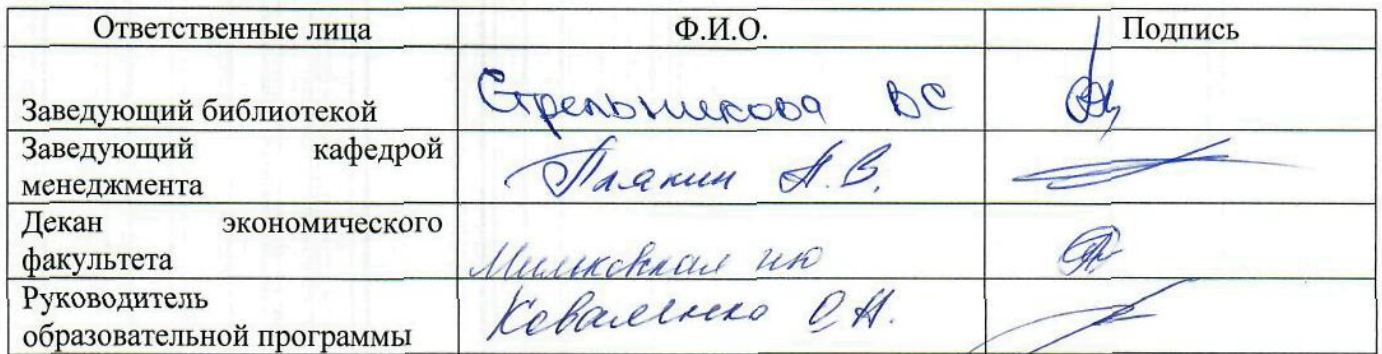 Ответственные лица Ф.И.О. Подпись
Заведующий библиотекой Стрельникова ВС
Заведующий кафедрой
менеджмента Плякин А.В.
Декан экономического
факультета ИЮ
Руководитель
образовательной программы Коваленко О.А.